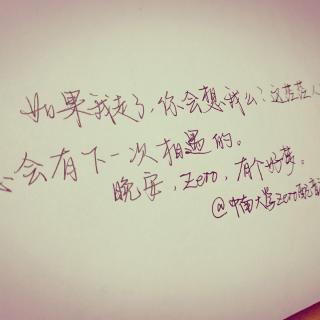 如果我走了,你会想我么?这茫茫人
会有下一次相遇的。
晚安,Zero,有个好梦。
@中南大学Zero配音